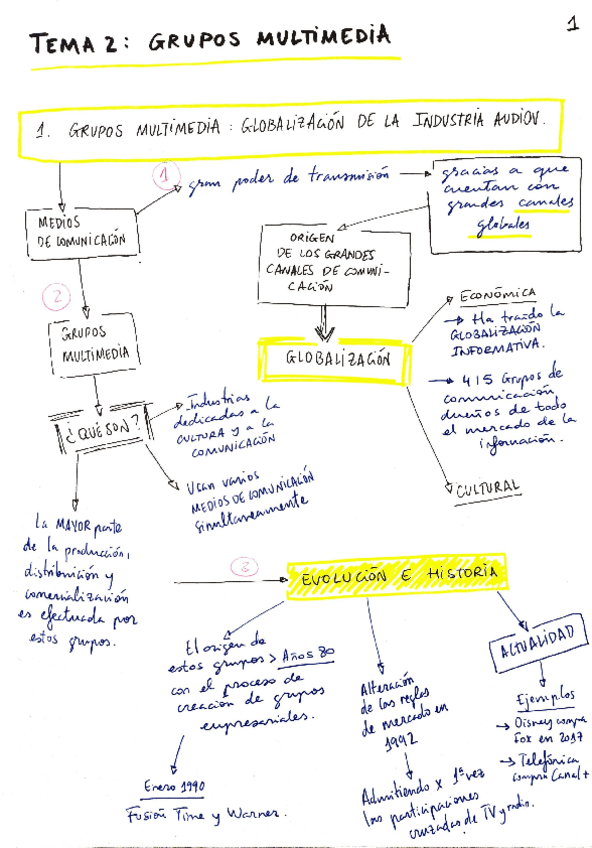 1
TEMA 2: GRUPOS MULTIMEDIA
1. GRUPOS MULTIMEDIA: GLOBALIZACIÓN DE LA INDUSTRIA AUDIOV.
1
gran poder de transmisión
gracias a que
cuentan con
grandes canales
globales
MEDIOS
DE COMUNICACIÓN
ORIGEN
DE LOS GRANDES
CANALES DE COMUNI-
CACIÓN
GLOBALIZACIÓN
ECONÓMICA
→ Ha traído la
GLOBALIZACIÓN
INFORMATIVA.
→ 4 | 5 Grupos de
comunicación
dueños de todo
el mercado de la
información.
CULTURAL
2
GRUPOS
MULTIMEDIA
¿QUÉ SON?
Industrias
dedicadas a la
CULTURA y a la
COMUNICACIÓN
Usan varios
MEDIOS DE COMUNICACIÓN
simultaneamente
La MAYOR parte
de la producción,
distribución y
comercialización
es efectuada por
estos grupos.
3
EVOLUCIÓN E HISTORIA
El origen de
estos grupos > Años 80
con el proceso de
creación de grupos
empresariales.
Enero 1990
Fusión Time y Warner.
Alteración
de las reglas
de mercado en
1992
Admitiendo x 1ª vez
las participaciones
cruzadas de TV y radio.
ACTUALIDAD
Ejemplos
→ Disney compra
Fox en 2017
→ Telefónica
compra Canal+